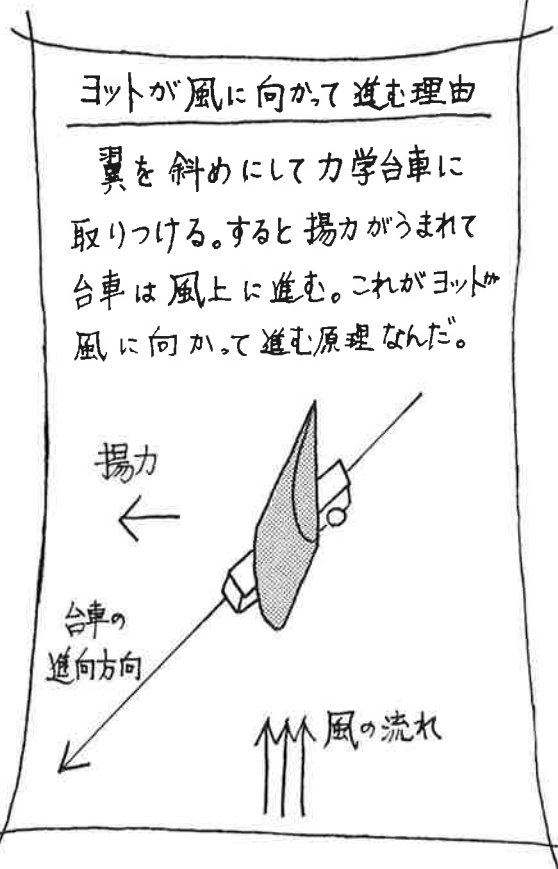 ヨットが風に向かって進む理由
翼を斜めにして力学台車に
取りつける。すると揚力がうまれて
台車は風上に進む。これがヨットが
風に向かって進む原理なんだ。
揚力
台車の
進向方向
風の流れ